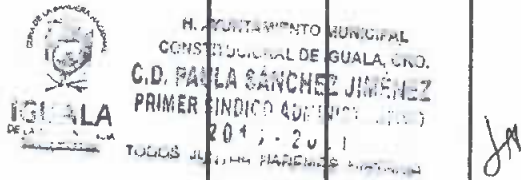 CUNA DE LA BANDERA NACIONAL
IGUALA
DE LA
H. AYUNTAMIENTO MUNICIPAL
CONSTITUCIONAL DE IGUALA, GRO.
C.D. PAULA SANCHEZ JIMÉNEZ
PRIMER SINDICO
TODOS JUNTOS HAREMOS